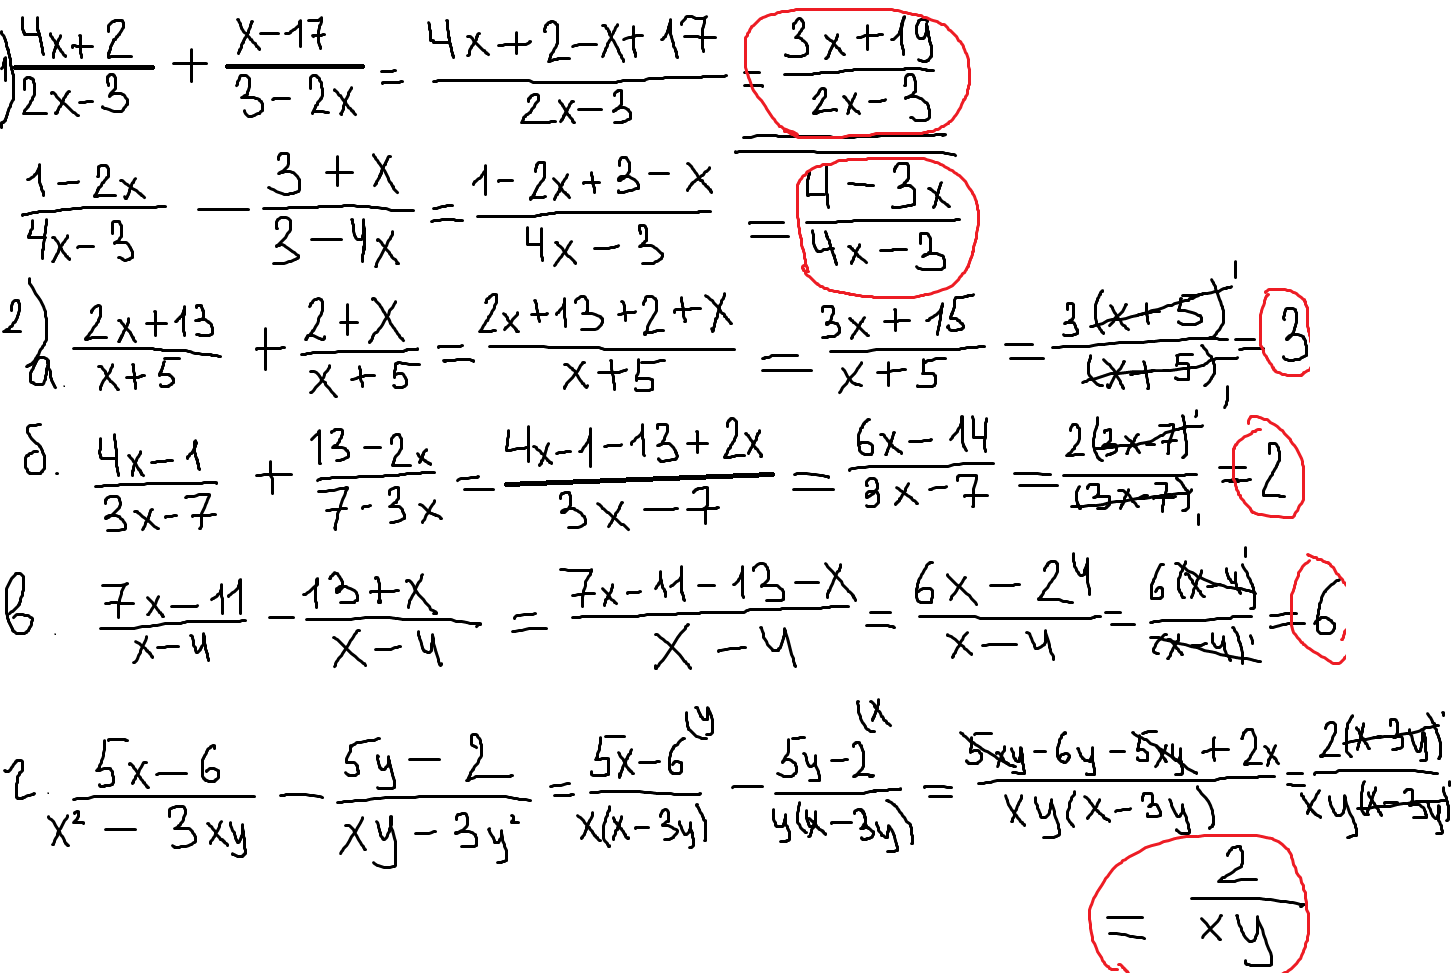 1) (4x+2)/(2x-3) + (x-17)/(3-2x) = (4x+2-x+17)/(2x-3) = (3x+19)/(2x-3)
(1-2x)/(4x-3) - (3+x)/(3-4x) = (1-2x+3-x)/(4x-3) = (4-3x)/(4x-3)
2) а. (2x+13)/(x+5) + (2+x)/(x+5) = (2x+13+2+x)/(x+5) = (3x+15)/(x+5) = 3(x+5)/(x+5) = 3
б. (4x-1)/(3x-7) + (13-2x)/(7-3x) = (4x-1-13+2x)/(3x-7) = (6x-14)/(3x-7) = 2(3x-7)/(3x-7) = 2
в. (7x-11)/(x-4) - (13+x)/(x-4) = (7x-11-13-x)/(x-4) = (6x-24)/(x-4) = 6(x-4)/(x-4) = 6
г. (5x-6)/(x²-3xy) - (5y-2)/(xy-3y²) = (5x-6)(y/(x(x-3y)) - (5y-2)(x/(y(x-3y)) = (5xy-6y-5xy+2x)/(xy(x-3y)) = 2(x-3y)/(xy(x-3y))
= 2/(xy)